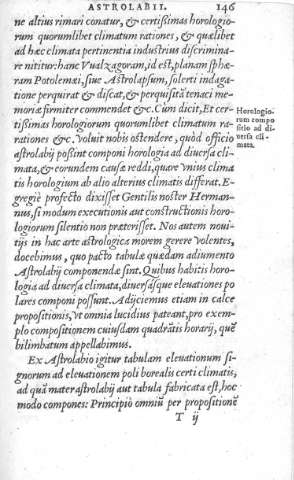 ASTROLABII. 146
ne altius rimari conatur, & certißimas horologio-
rum quorumlibet climatum rationes, & quælibet
ad hæc climata pertinentia industrius discrimina-
re nititur: hanc Vualzagoram, id est, planam sphæ-
ram Potolemæi, siue Astrolapsum, solerti indaga-
tione perquirat & discat, & perquisitā tenaci me-
moriæ firmiter commendet &c. Cum dicit, Et cer-
tißimas horologiorum quorumlibet climatum ra-
rationes &c. Voluit nobis ostendere, quòd officio
astrolabij poßint componi horologia ad diuersa cli-
mata, & eorundem causæ reddi, quare vnius clima
tis horologium ab alio alterius climatis differat. E-
gregiè profecto dixisset Gentilis noster Herman-
nus, si modum executionis aut constructionis horo-
logiorum silentio non præterisset. Nos autem noui-
tijs in hac arte astrologica morem gerere volentes,
docebimus, quo pacto tabulæ quædam adiumento
Astrolabij componendæ sint. Quibus habitis horo-
logia ad diuersa climata, diuersasq́ue eleuationes po
lares componi possunt. Adijciemus etiam in calce
propositionis, vt omnia lucidius pateant, pro exem-
plo compositionem cuiusdam quadrātis horarij, quē
bilimbatum appellabimus.
Ex Astrolabio igitur tabulam eleuationum si-
gnorum ad eleuationem poli borealis certi climatis,
ad quā mater astrolabij aut tabula fabricata est, hoc
modo compones: Principiò omniū per propositionē
T ij
Horologio-
rum compo
sitio ad di-
uersa cli-
mata.